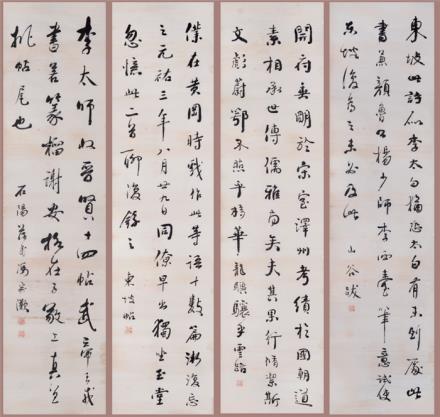 東坡此詩似李太白猶恐太白有未到處此
書兼顏魯公楊少師李西臺筆意試使
東坡復為之未必及此 山谷跋
開府英明於宗室澤州考績於國朝道
素相承世傳儒雅尚矣夫其果行脩絜斯
文彪蔚鄂不照乎棣華龍驥驤乎雲路
僕在黃岡時戲作此等語十數篇漸復忘
之元祐三年八月廿九日同僚早出獨坐玉堂
忽憶此二首聊復錄之 東坡帖
李太師收晉賢十四帖武帝王戎
書若篆籀謝安格在子敬上真宜
批帖尾也